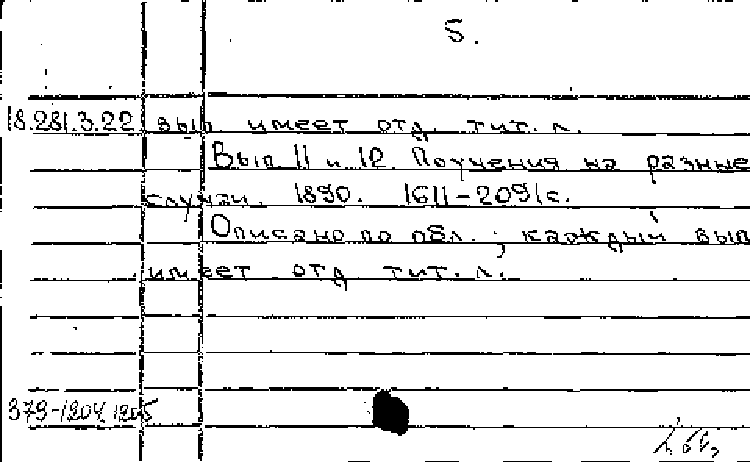 5.
18.281.3.22 вып имеет отд. тит. л.
Вып 11 и 12. Поучения на разные
случаи. 1890. 1611-2091с.
Описано по обл.; каждый вып
имеет отд тит. л.
379-1204, 1205